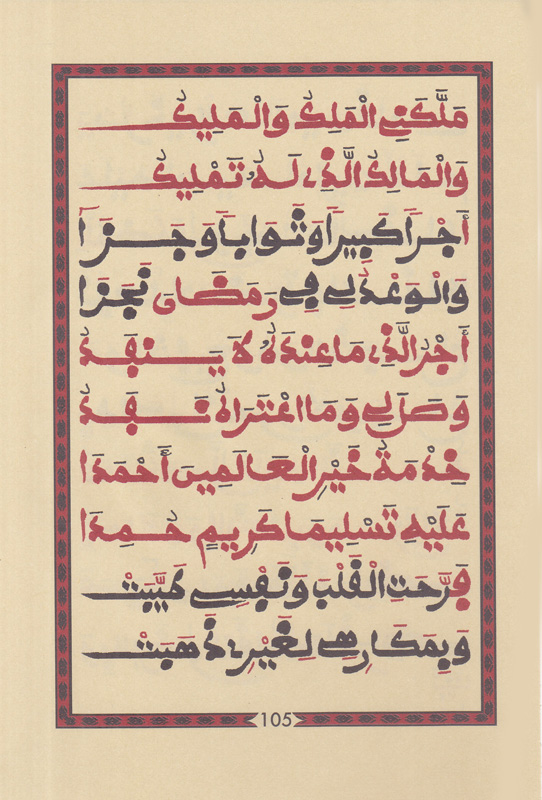 مَلَّكَنِي الْمَلِكُ وَالْمَلِيكُ
وَالْمَالِكُ الَّذِي لَهُ تَمْلِيكُ
أَجْرًا كَبِيرًا وَثَوَابًا وَجَزَا
وَالْوَعْدُ لِي فِي رَمَضَانَ نَجَزَا
أَجْرُ الَّذِي مَا عِنْدَهُ لَا يَنْفَدُ
وَصَلَ لِي وَمَا اعْتَرَاهُ نَفَدُ
خِدْمَةُ خَيْرِ الْعَالَمِينَ أَحْمَدَا
عَلَيْهِ تَسْلِيمَا كَرِيمٍ حُمِدَا
فَرَّحَتِ الْقَلْبَ وَنَفْسِي طَيَّبَتْ
وَبِمَكَارِهِي لِغَيْرِي ذَهَبَتْ
105